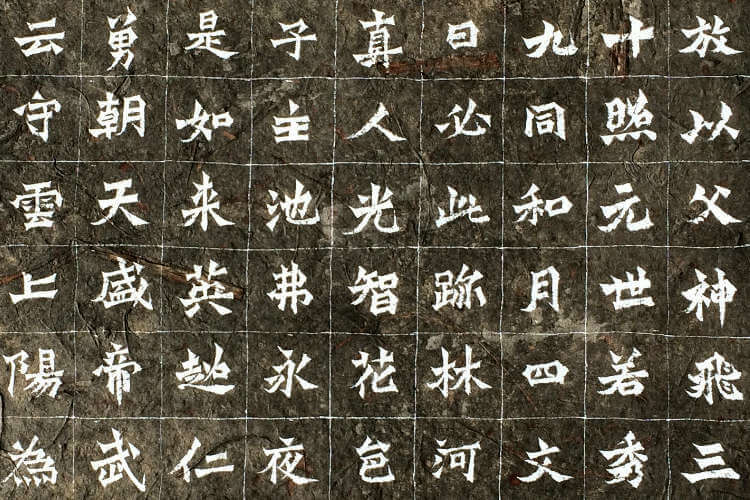 放以父神飛三
十照元世若秀
九同和月四文
日必此跡林河
真人光智花
子主池弗永夜
是如来英仁
勇朝天盛帝武
云守雲上陽為